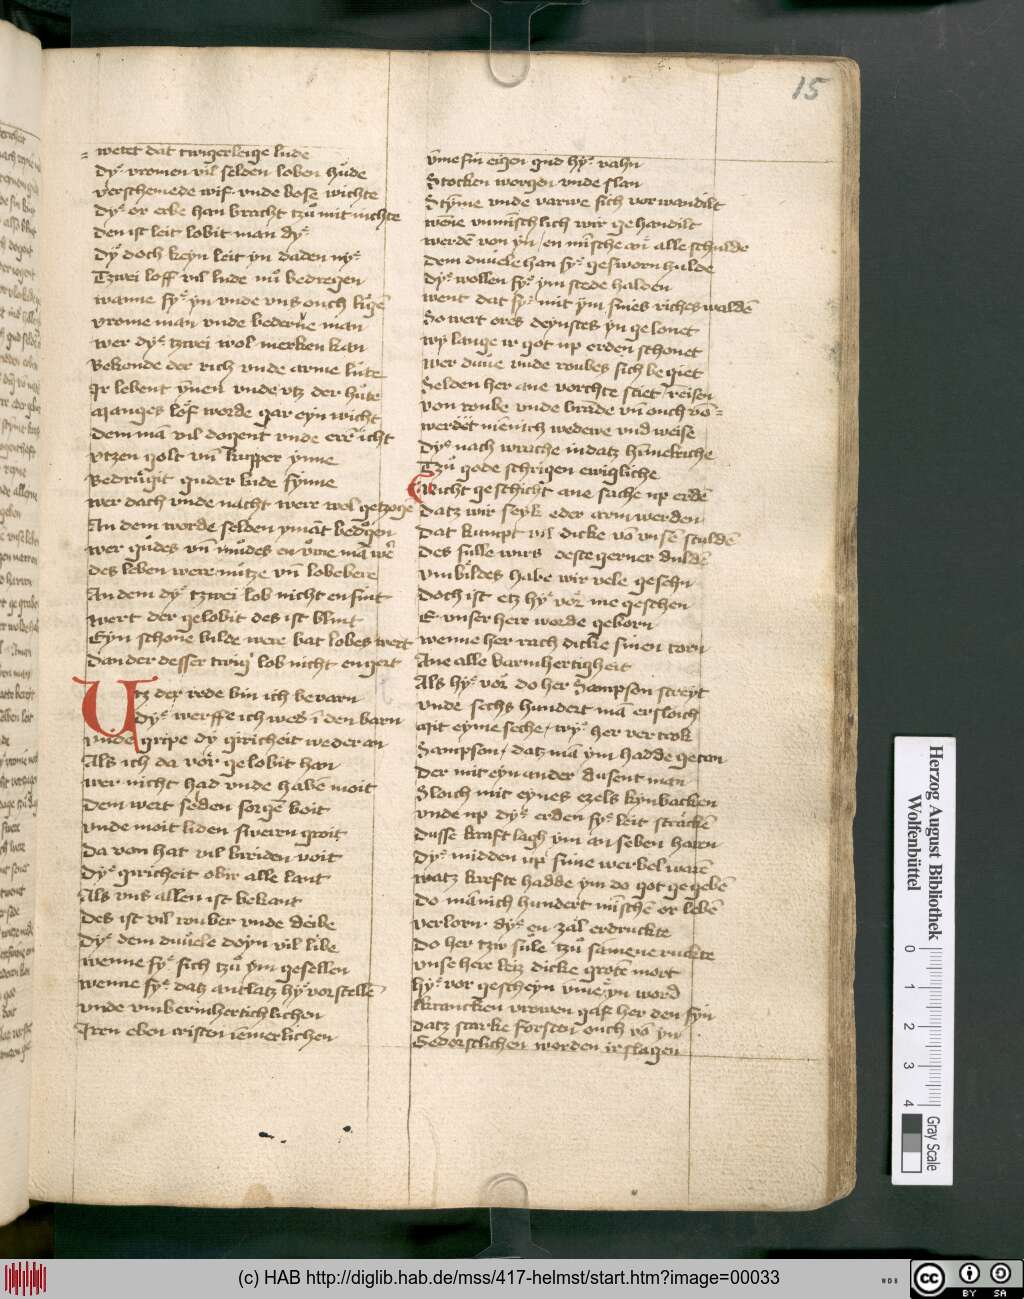 15
= wetet dat twigerleige lude
Dy vromen vil selden loben hude
verschemede wif vnde bose wichte
Dy er erbe han bracht tzu mit nichte
Den ist leit lobit man dy
Dy doch keyn leit yn daden ny
Tzwei loff vil lude mu bedregen
wanne sy yn vnde vns ouch ligen
vrome man vnde bederue man
wer dy tzwei wol merken kan
Bekonde der rich vnde arme lute
Ir lebent ynnen vnde vtz der hute
Manges lof worde gar eyn wicht
Dem man vil dogent vnde eren icht
vtzen golt vnd kupper ynne
Bedrugit guder lude synne
wer dach vnde nacht were wol getzoge
An dem worde selden ymant bedrogen
wer gudes vnd mudes en vrome man were
des leben were nutze vnd lobebere
An dem dy tzwei lob nicht en sint
wert der gelobit des ist blint
Eyn schone bilde were bat lobes wert
Dan der desser twig lob nicht en gert
Utz der rede bin ich bevarn
dy werffe ich wes in den barn
vnde gripe dy giricheit weder an
Als ich da vor gelobit han
wer nicht had vnde haben moit
Dem wert seden sorgen boit
vnde moit liden swern groit
Da von hat vil briden voit
Dy giricheit obir alle lant
Als vns allen ist bekant
Des ist vil rouber vnde deibe
Dy dem duuele doyn vil libe
wenne sy sich tzu ym gesellen
wenne sy datz antlatz hy vorstellen
vnde vmbermhertichlichen
Iren eben cristen iemerlichen
vmme sin eigen gud hy vahn
Stocken worgen vnde slan
Stymme vnde varwe sich vorwandilt
wenne vnmenschlich wir gehandilt
werden von yn en mensche an alle schulde
Dem duuele han sy gesworn hulde
Dy wollen sy ym stede halden
went dat sy mit ym sines riches walden
So wert ores deynstes yn gelonet
wy lange ir got up erden schonet
wer duue vnde roubes sich begiet
Selden her ane vorchte sliet reisen
von roube vnde brande vnd ouch von =
werdet mennich wedewe vnd weise
Dy nach wrache indatz himmelriche
Tzu gode schrigen ewigliche
Nicht geschicht ane sache up erden
Datz wir seyk eder arm werden
Dat kumpt vil dicke von vnsen sculden
Des sulle wirs deste gerner dulden
vnbildes habe wir vele gesehn
Doch ist etz hy vor me geschen
E vnser here worde geborn
wenne her rach dicke sinen torn
Ane alle barmhertigheit
Als hy vor do her Sampson streyt
vnde sechs hundert man ersloich
Mit eyme seche wy her vertrok
Sampson datz man ym hadde getan
Der mit eyn ander dusent man
Sloich mit eynes ezels kynbacken
vnde up dy erden sy leit stracken
Dusse kraft lagh ym an seben harn
Dy midden up sime werbel waren
watz krefte hadde ym do got gegeben
Do mannich hundert menschen or leben
verlorn dy en zal erdruckte
Do her tzwe sule tzu samene ruckte
vnse here leiz dicke grote mort
hy vor gescheyn vmme eyn word
Krancken vrowen gaf her den syn
datz starke forsten ouch von yn
Gedorstlichen worden irslagen
Herzog August Bibliothek
Wolfenbüttel
0 1 2 3 4
Gray Scale
(c) HAB http://diglib.hab.de/mss/417-helmst/start.htm?image=00033
WDB
cc BY SA